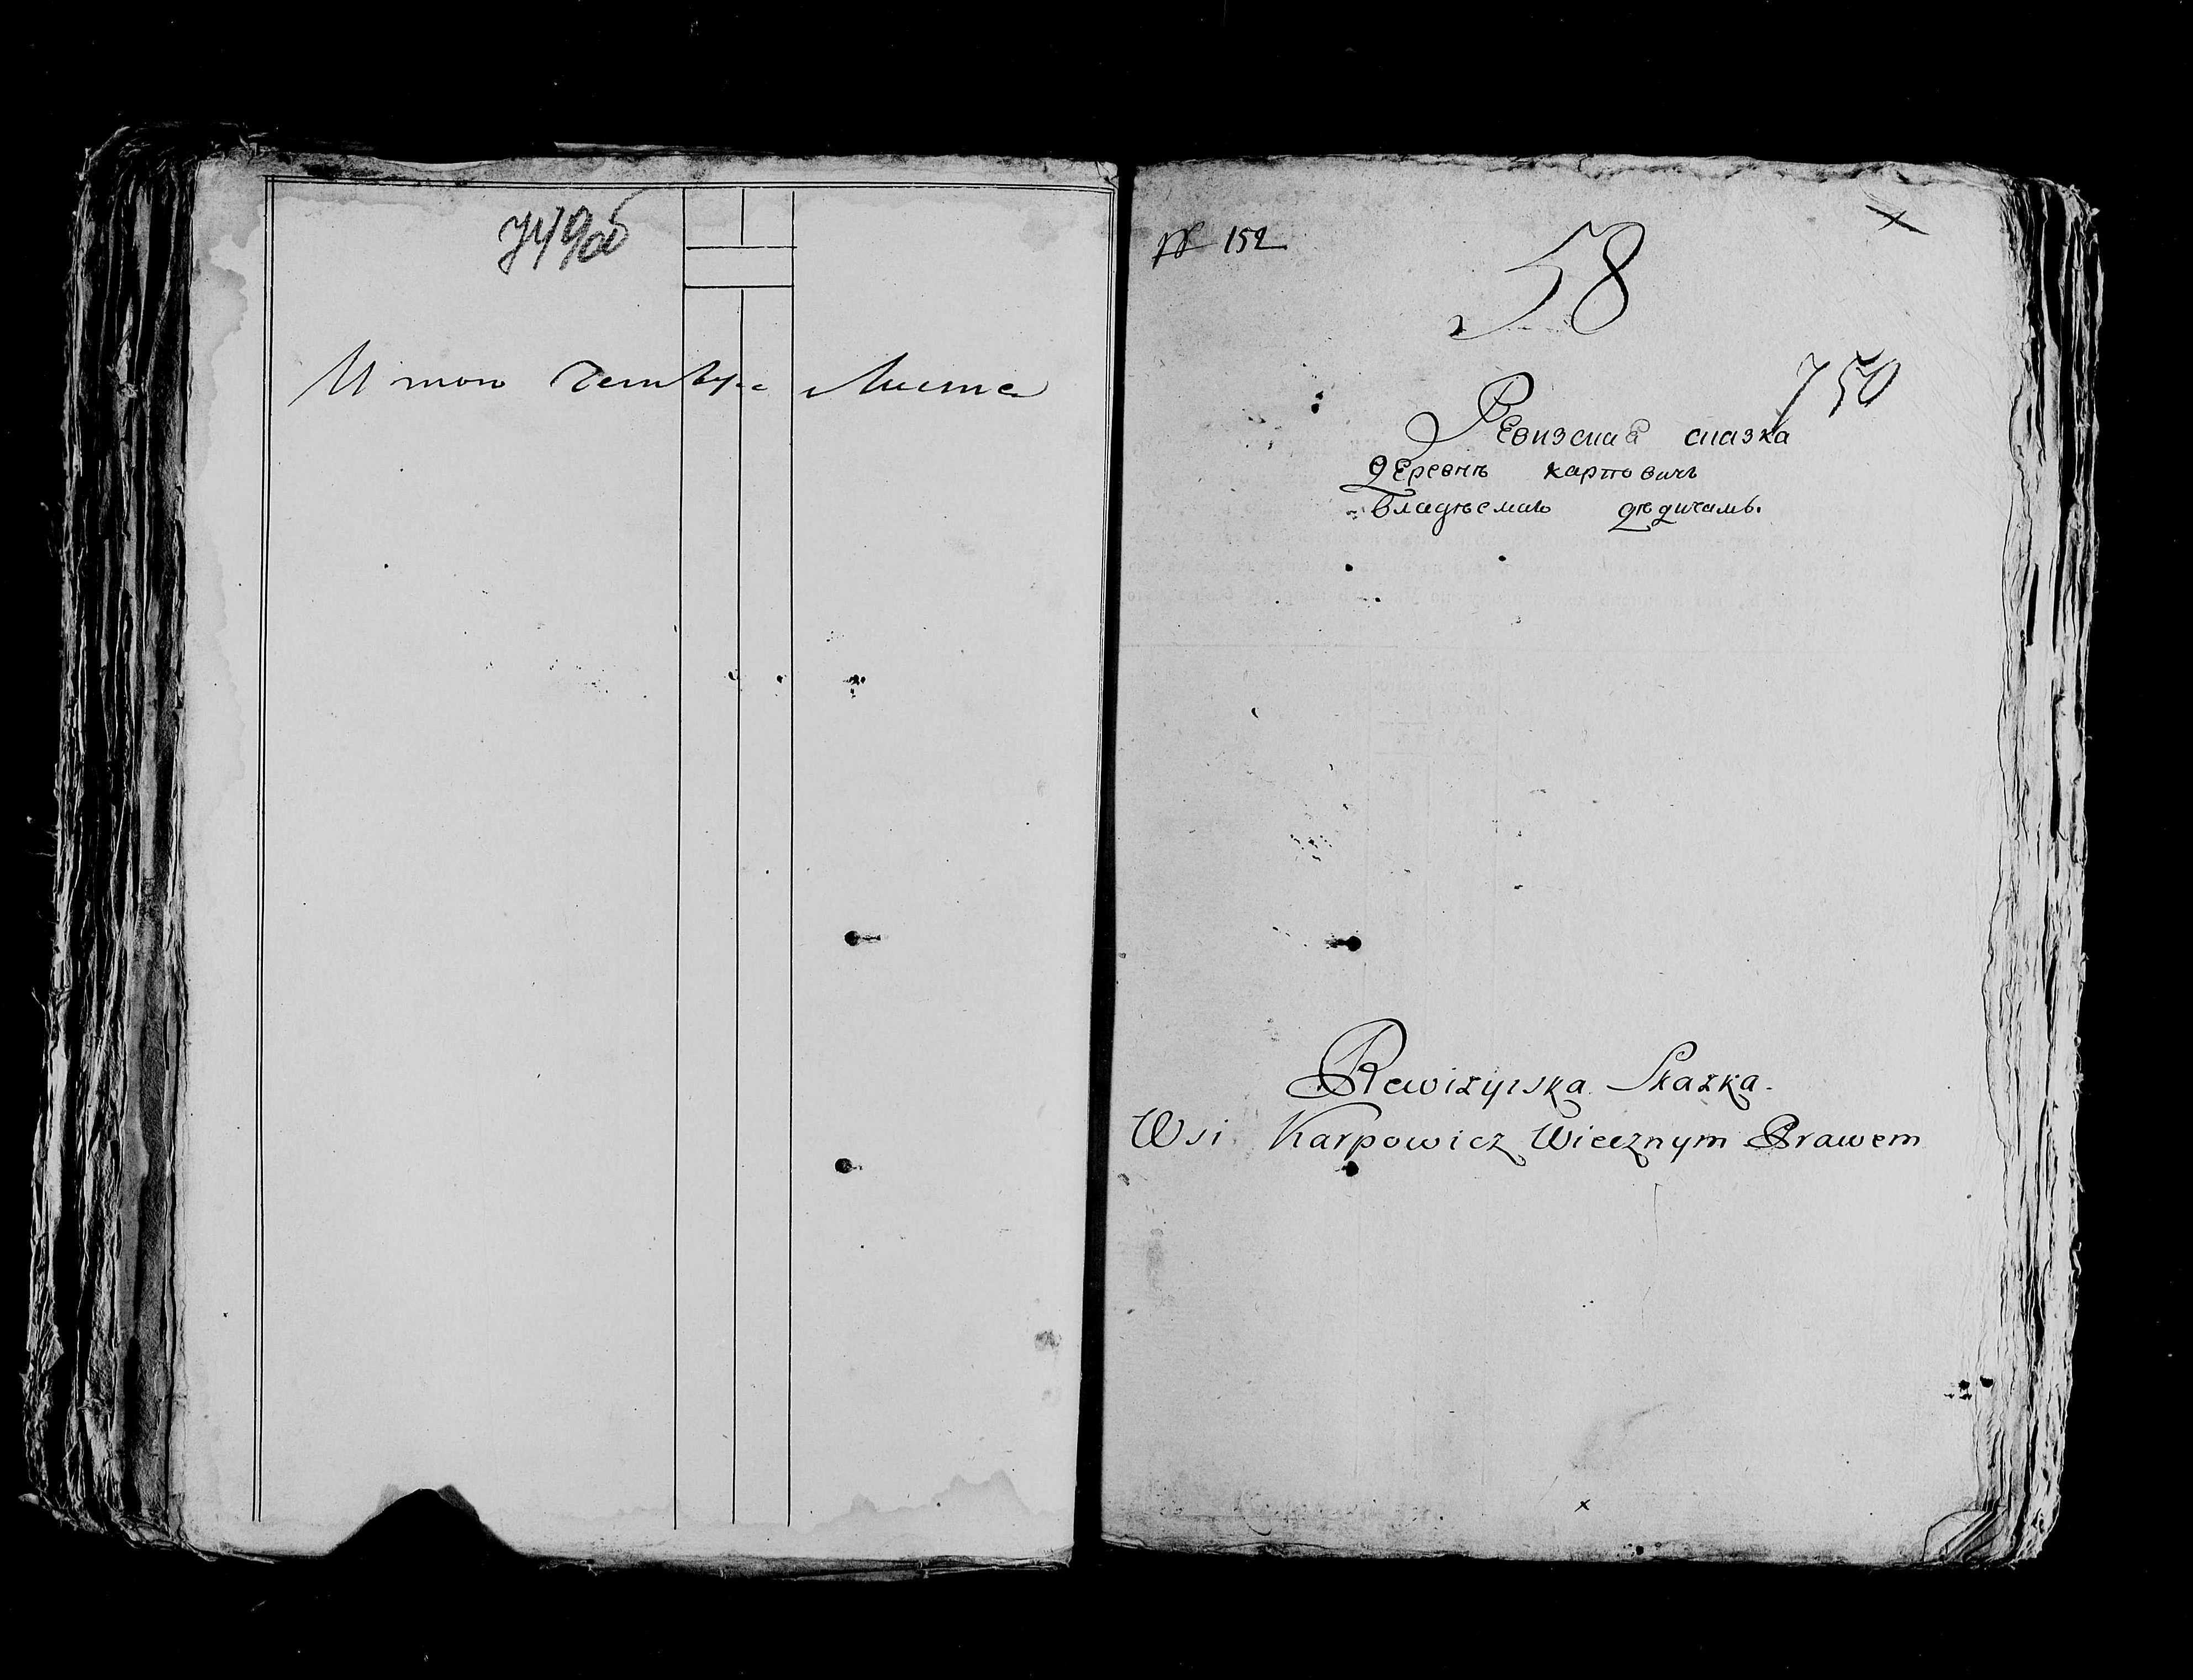 749об
Итого Четыре Листа
№ 152
58
750
Ревизская сказка
деревнѣ карповичъ
владѣемаю дѣдичамъ.
Rewizyiska Skazka.
Wsi Karpowicz Wiecznym Prawem